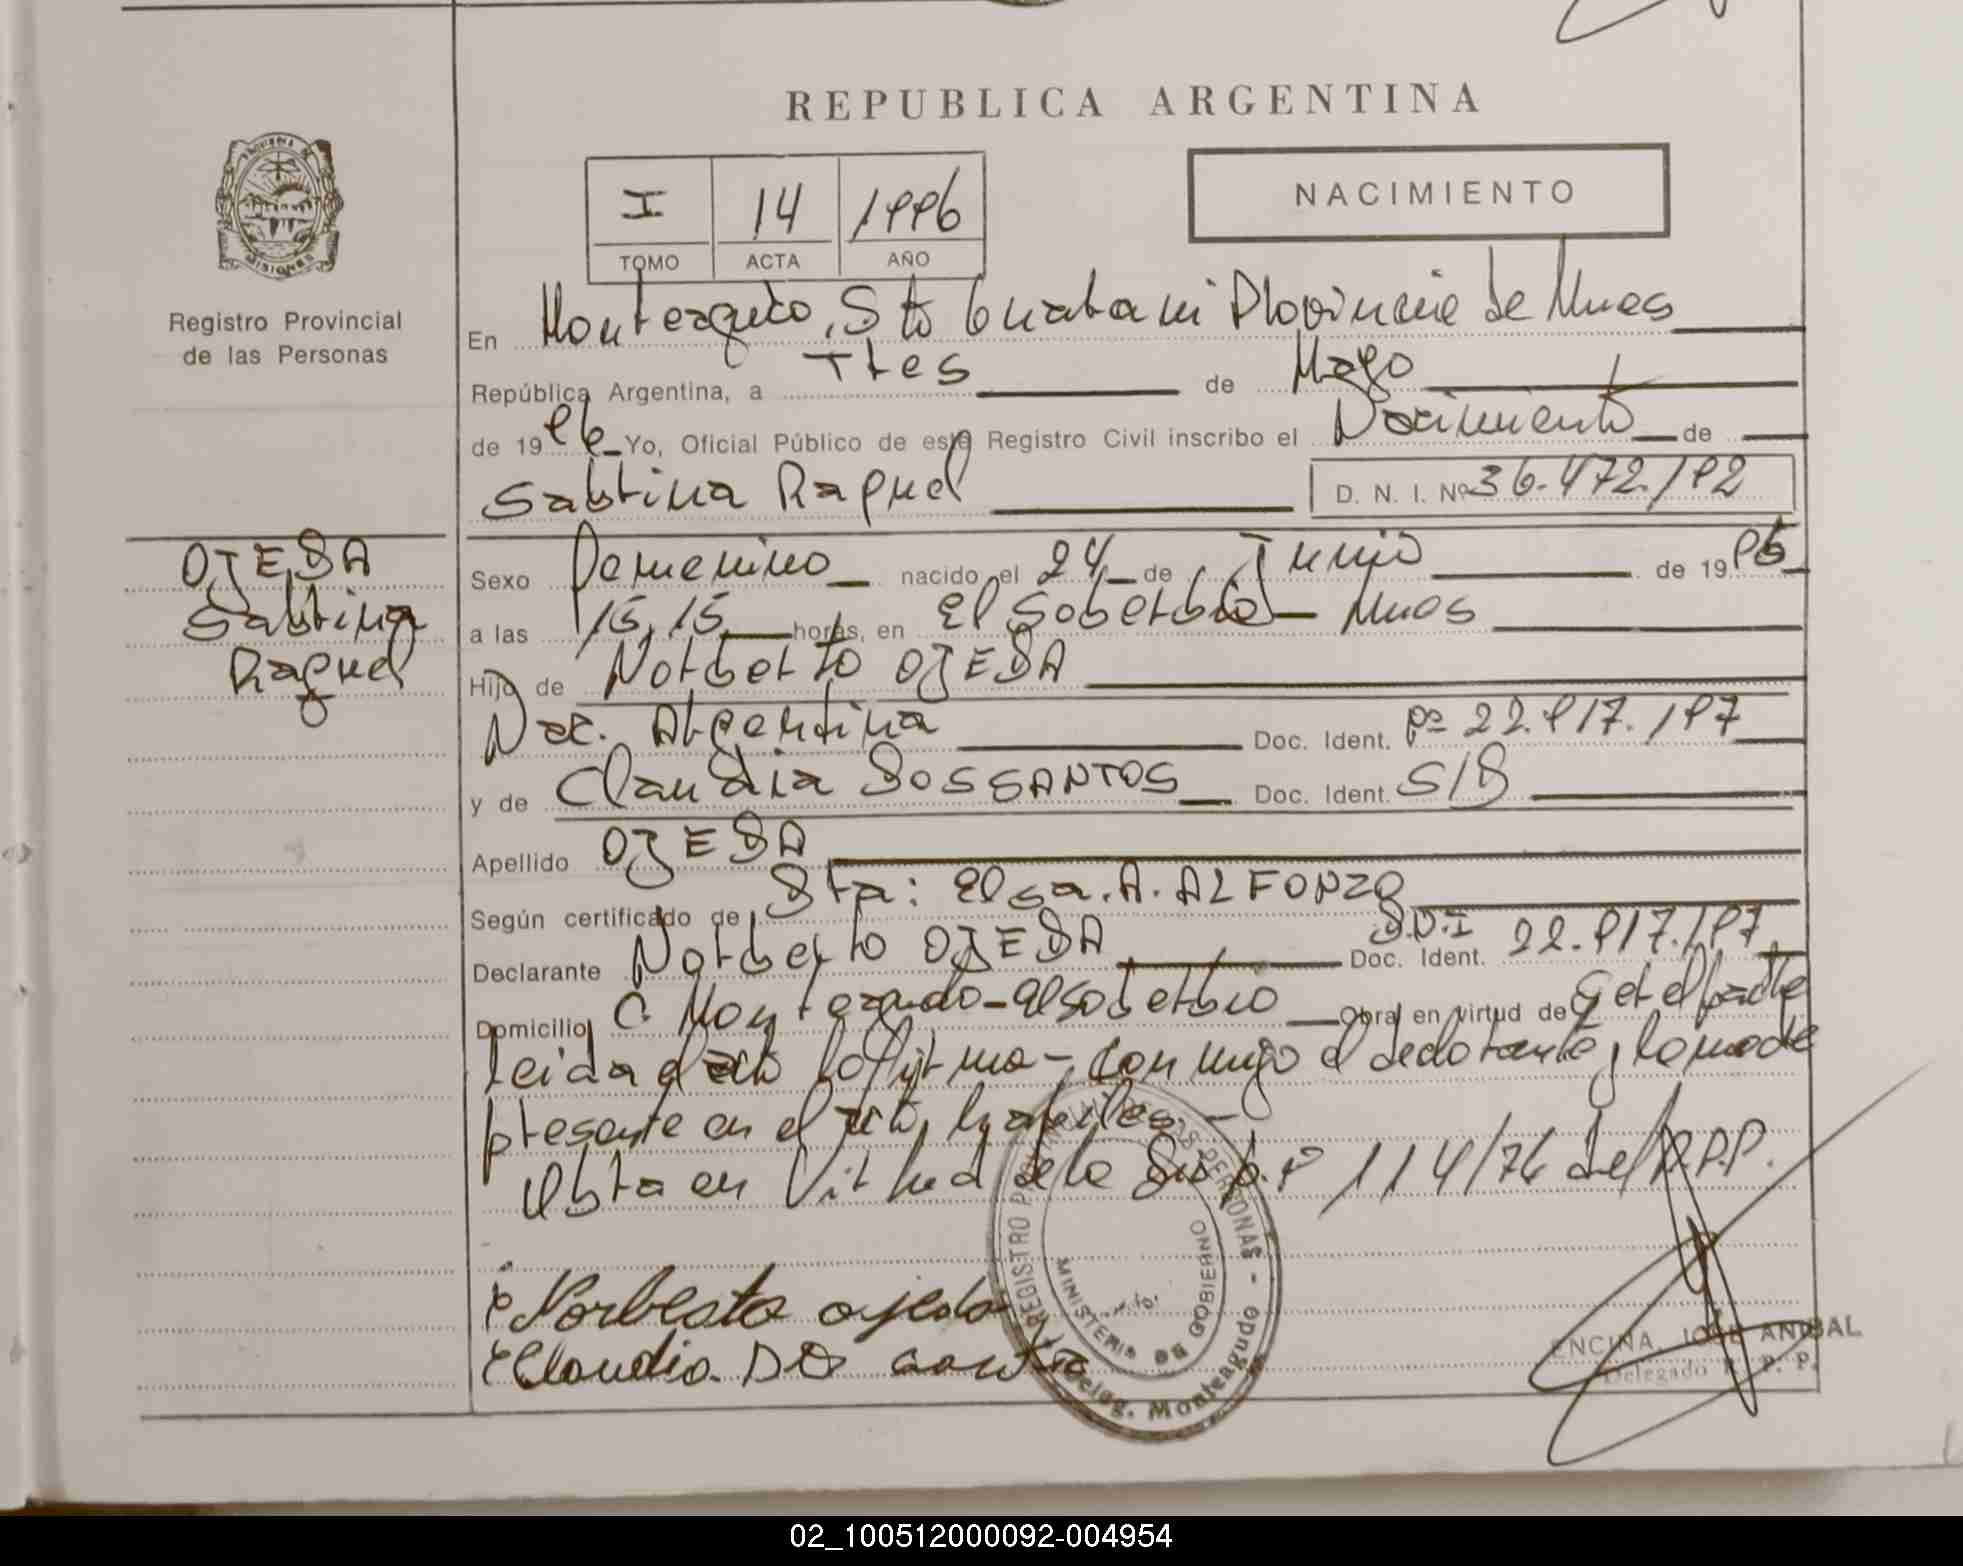 REPUBLICA ARGENTINA
NACIMIENTO
I 14 1996
TOMO ACTA AÑO
Registro Provincial
de las Personas
En Monteagudo, Dto Guarani Provincia de Mnes
República Argentina, a Tres de Mayo
de 1996 Yo, Oficial Público de este Registro Civil inscribo el Nacimiento de
Sabrina Raquel D. N. I. Nº 36.472.192
OJEDA
Sabrina
Raquel
Sexo Femenino nacido el 24 de Junio de 1995
a las 15,15 horas, en El Soberbio - Mnes
Hijo de Norberto OJEDA
Nac. Argentina Doc. Ident. 22.917.197
y de Claudia DOSSANTOS Doc. Ident. S/D
Apellido OJEDA
Según certificado de Dra: Elsa. A. ALFONZO
Declarante Norberto OJEDA D.N.I Doc. Ident. 22.917.197
Domicilio C. Monteagudo - El Soberbio Obra en virtud de Ser el padre
Leida el acta la firma - conmigo el declarante, la madre
presente en el acto,
Obra en Virtud de la Disp. Nº 114/76 del R.P.P.
Norberto ojeda
Claudia. DO santo
REGISTRO PROVINCIAL DE LAS PERSONAS
MINISTERIO DE GOBIERNO
Deleg. Monteagudo
ENCINA, JOSE ANIBAL
Delegado R. P. P.
02_100512000092-004954